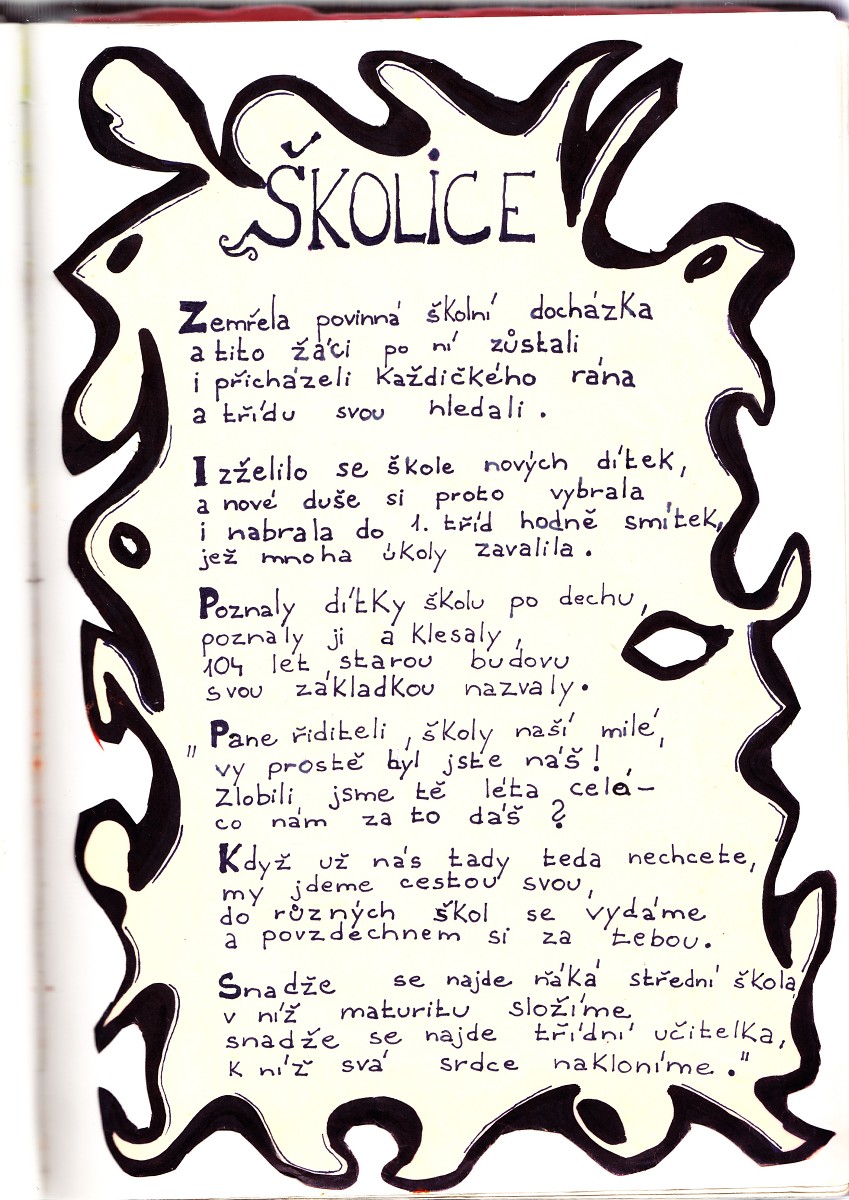 ŠKOLICE
Zemřela povinná školní docházka
a tito žáci po ní zůstali
i přicházeli každičkého rána
a třídu svou hledali.
Izželilo se škole nových dítek,
a nové duše si proto vybrala
i nabrala do 1. tříd hodně smítek,
jež mnoha úkoly zavalila.
Poznaly dítky školu po dechu,
poznaly ji a klesaly,
104 let starou budovu
svou základkou nazvaly.
"Pane řediteli, školy naší milé,
vy prostě byl jste náš!
Zlobili jsme tě léta celá-
co nám za to dáš?
Když už nás tady teda nechcete,
my jdeme cestou svou,
do různých škol se vydáme
a povzdechnem si za tebou.
Snadže se najde ňáká střední škola,
v níž maturitu složíme
snadže se najde třídní učitelka,
k níž svá srdce nakloníme."